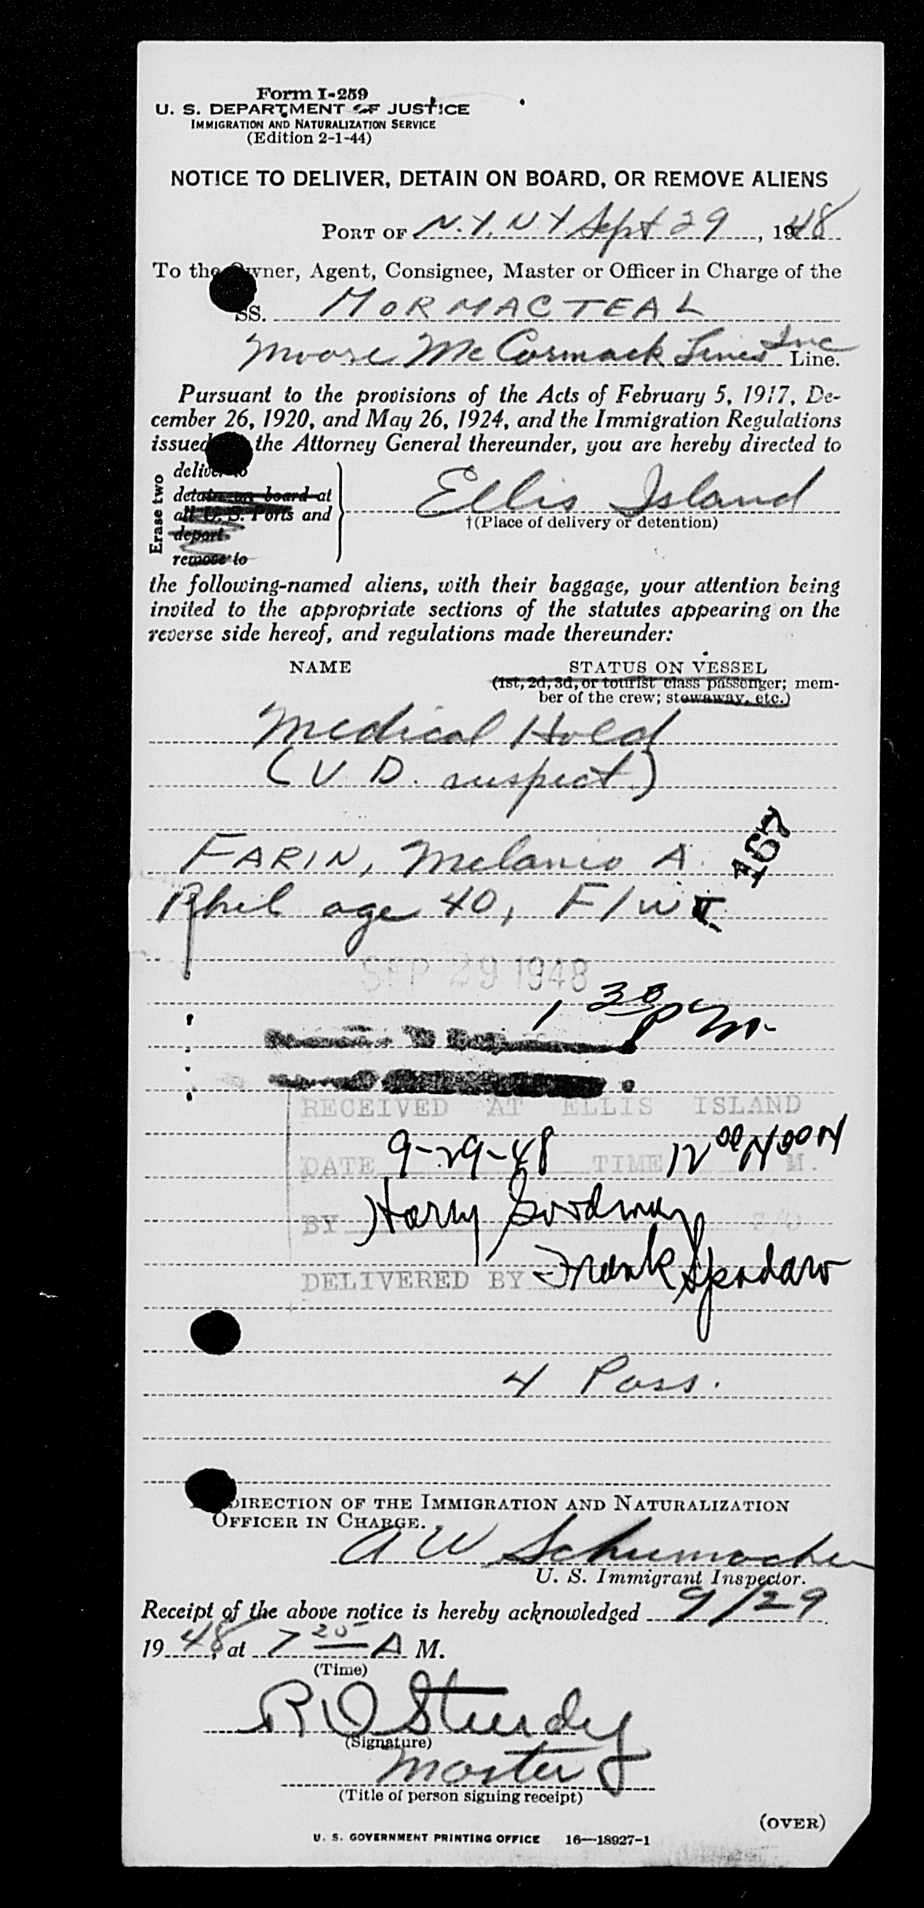 Form I-259
U. S. DEPARTMENT OF JUSTICE
IMMIGRATION AND NATURALIZATION SERVICE
(Edition 2-1-44)
NOTICE TO DELIVER, DETAIN ON BOARD, OR REMOVE ALIENS
PORT OF N.Y. N Y Sept 29, 1948
To the Owner, Agent, Consignee, Master or Officer in Charge of the
SS. MORMACTEAL
Moore McCormack Lines Inc Line.
Pursuant to the provisions of the Acts of February 5, 1917, De-
cember 26, 1920, and May 26, 1924, and the Immigration Regulations
issued the Attorney General thereunder, you are hereby directed to
Erase two
deliver to
detain on board at
all U. S. Ports and
deport
remove to
Ellis Island
†(Place of delivery or detention)
the following-named aliens, with their baggage, your attention being
invited to the appropriate sections of the statutes appearing on the
reverse side hereof, and regulations made thereunder:
NAME STATUS ON VESSEL
(1st, 2d, 3d, or tourist class passenger; mem-
ber of the crew; stowaway, etc.)
Medical Hold
(V D. suspect)
167
FARIN, Melanio A.
Phil age 40, F/W T
SEP 29 1948
1 30 pm.
RECEIVED AT ELLIS ISLAND
DATE 9-29-48 TIME 12 00 NOON M.
BY Harry Goodman S/O
DELIVERED BY Frank Spadaro
4 Pass.
DIRECTION OF THE IMMIGRATION AND NATURALIZATION
OFFICER IN CHARGE.
A W Schumacher
U. S. Immigrant Inspector.
Receipt of the above notice is hereby acknowledged 9/29
1948, at 7 25 A M.
(Time)
R O Sturdy
(Signature)
Master
(Title of person signing receipt)
(OVER)
U. S. GOVERNMENT PRINTING OFFICE 16—18927-1